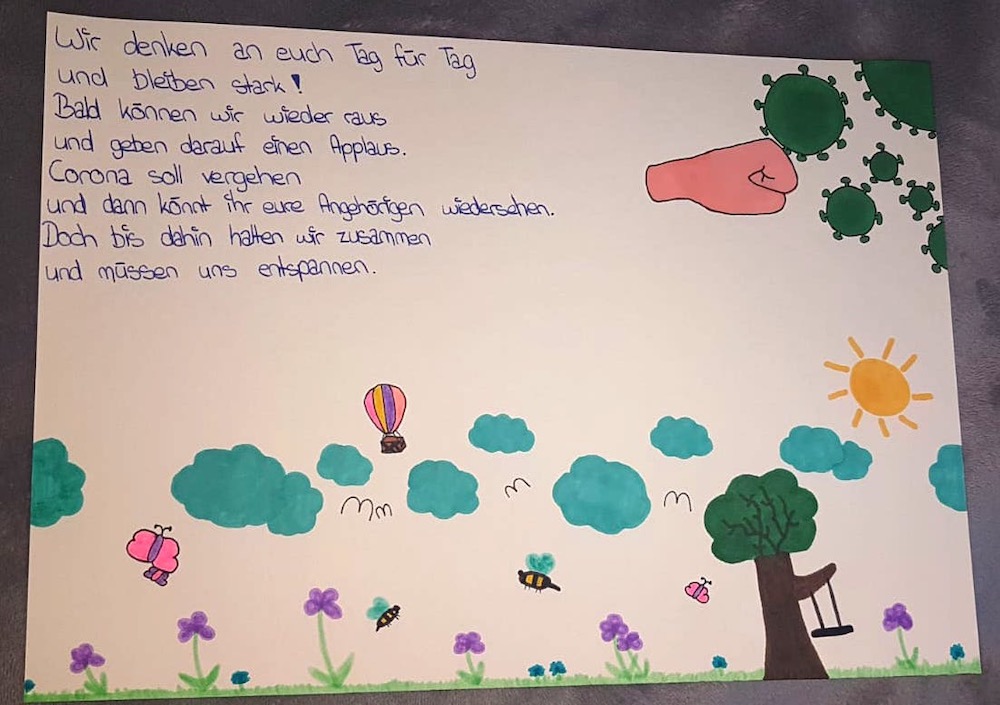 Wir denken an euch Tag für Tag
und bleiben stark!
Bald können wir wieder raus
und geben darauf einen Applaus.
Corona soll vergehen
und dann könnt ihr eure Angehörigen wiedersehen.
Doch bis dahin halten wir zusammen
und müssen uns entspannen.